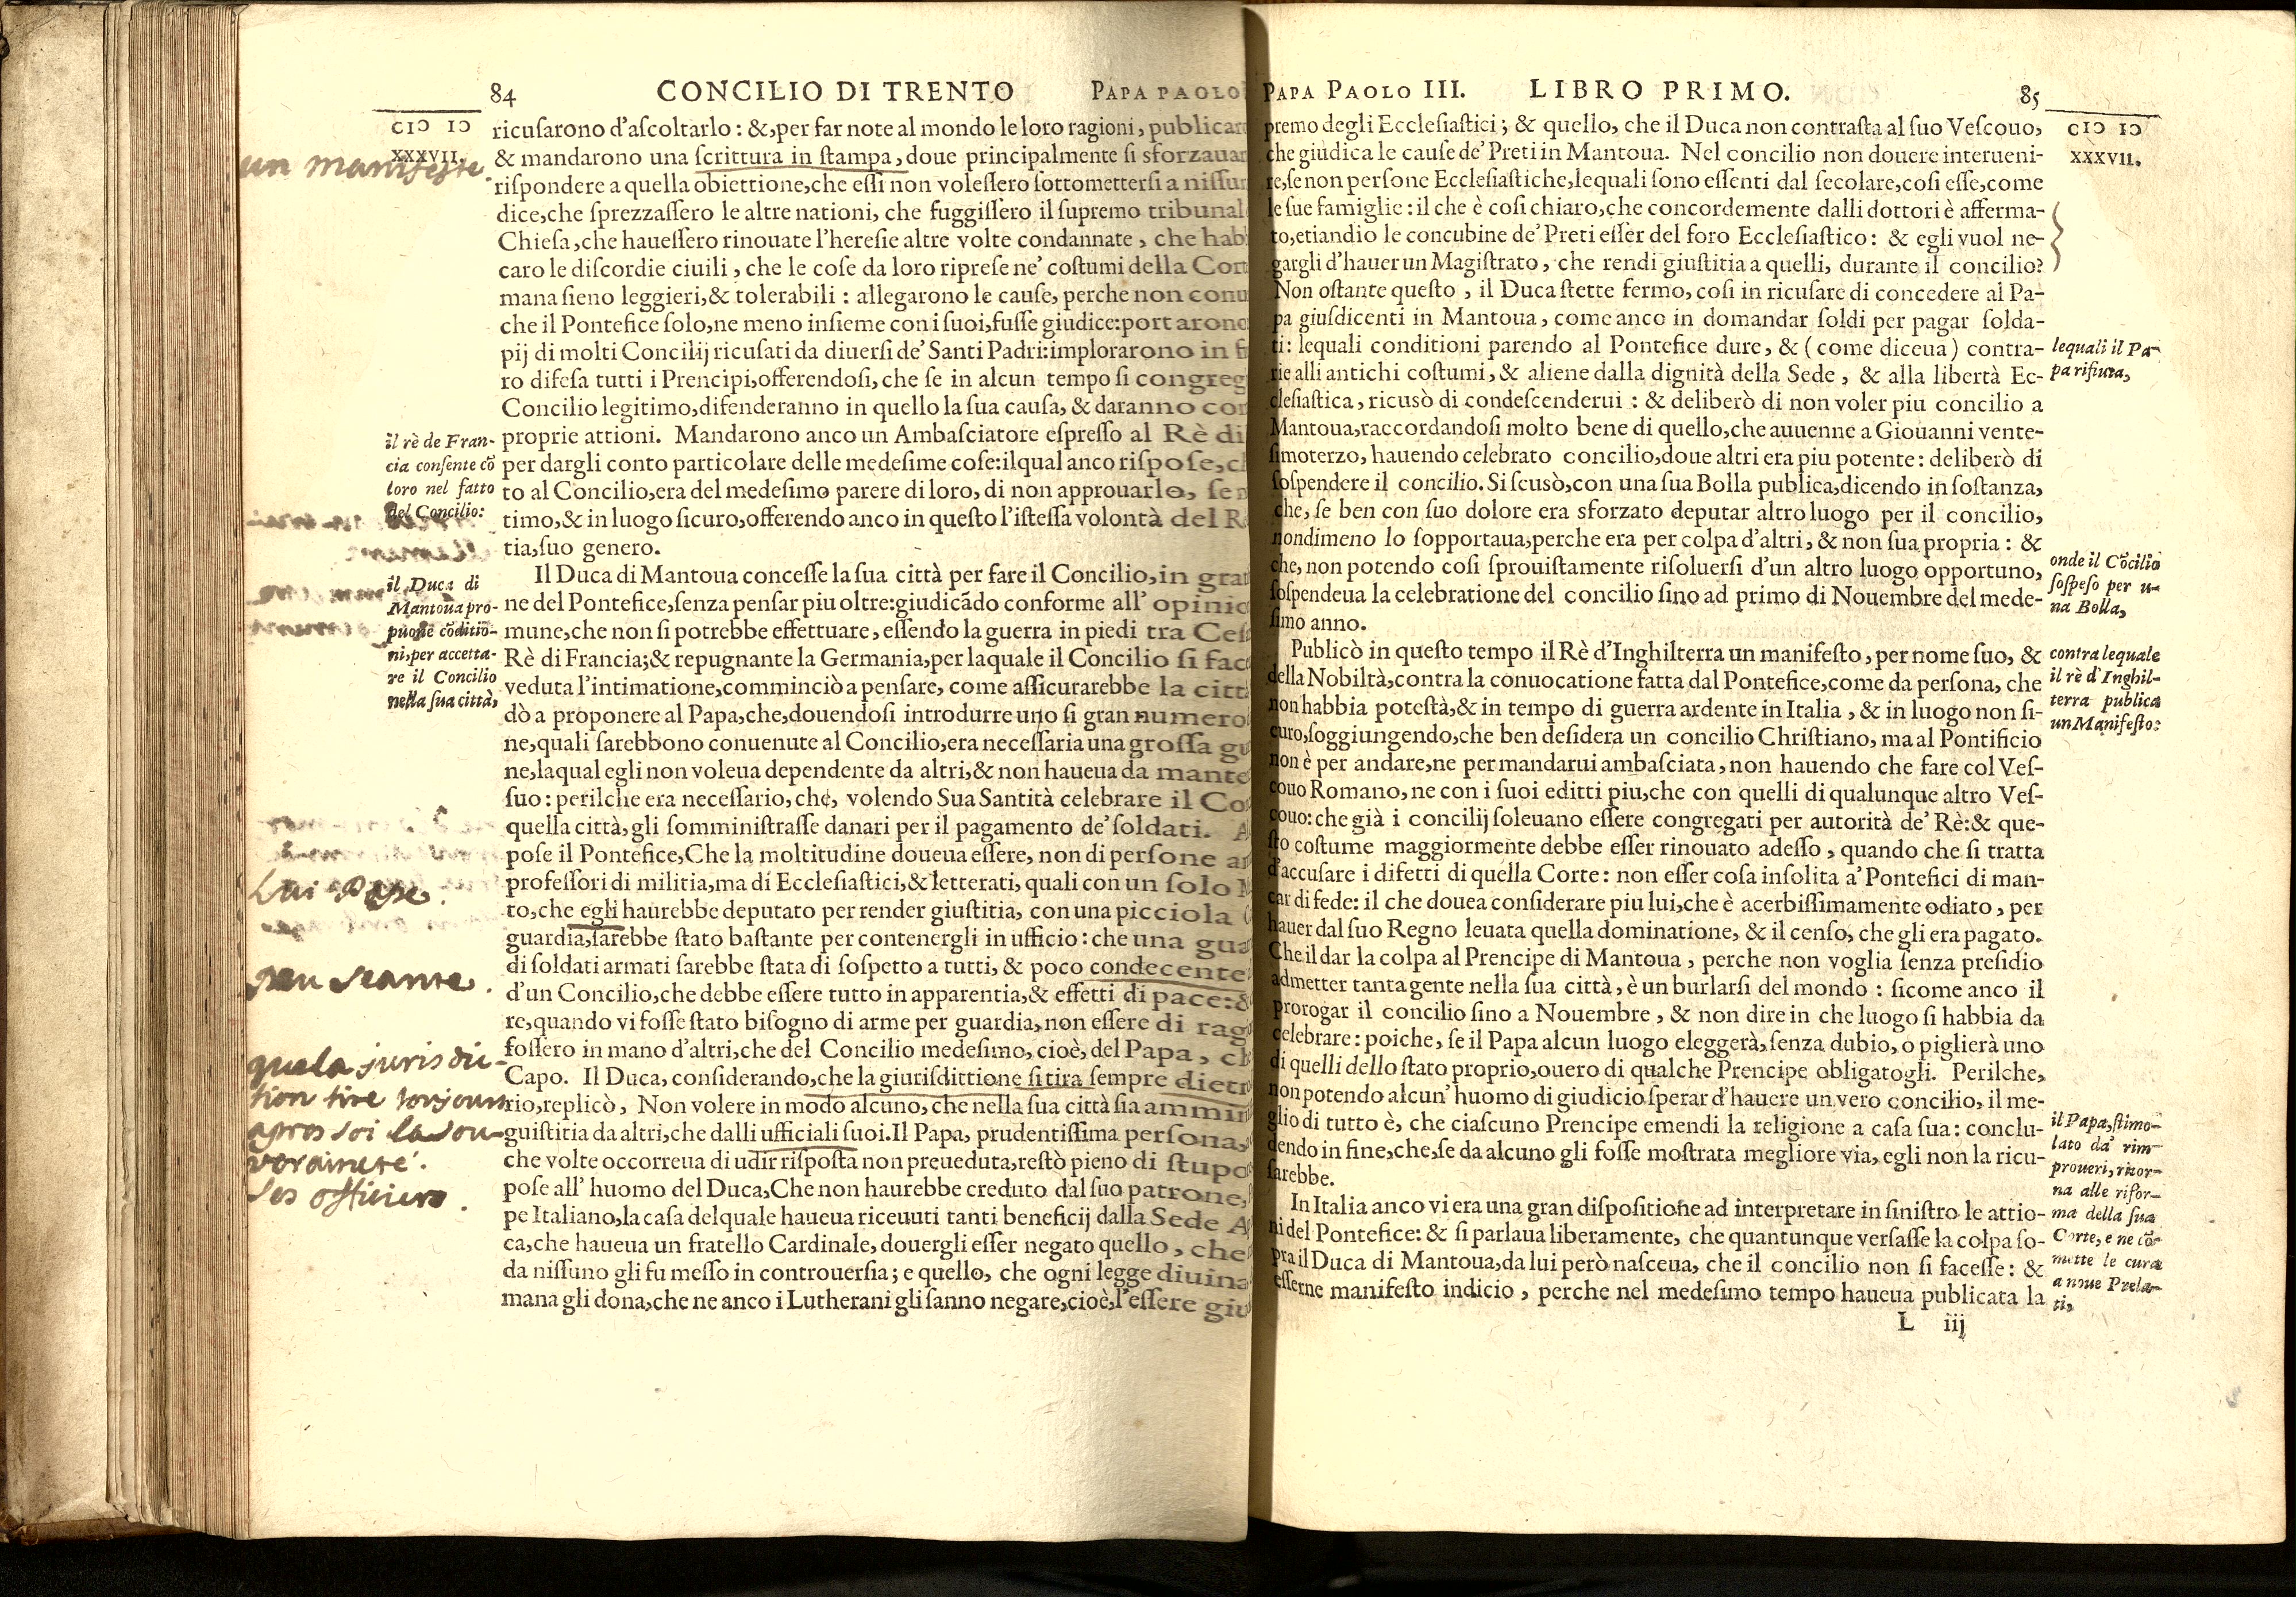 84 CONCILIO DI TRENTO PAPA PAOLO
CIↃ IↃ
XXXVII.
un manifeste.
ricuſarono d'aſcoltarlo : &,per far note al mondo le loro ragioni, publicar
& mandarono una ſcrittura in ſtampa, doue principalmente ſi sforzauan
riſpondere a quella obiettione,che eſſi non voleſſero ſottometterſi a niſſun
dice,che ſprezzaſſero le altre nationi, che fuggiſſero il ſupremo tribunal
Chieſa,che haueſſero rinouate l'hereſie altre volte condannate, che hab
caro le diſcordie ciuili, che le coſe da loro ripreſe ne' coſtumi della Cort
mana ſieno leggieri,& tolerabili : allegarono le cauſe, perche non conu
che il Pontefice ſolo,ne meno inſieme con i ſuoi,fuſſe giudice:portarono
pij di molti Concilij ricuſati da diuerſi de' Santi Padri:implorarono in
ro difeſa tutti i Prencipi,offerendoſi, che ſe in alcun tempo ſi congreg
Concilio legitimo,difenderanno in quello la ſua cauſa, & daranno con
proprie attioni. Mandarono anco un Ambaſciatore eſpreſſo al Rè di
per dargli conto particolare delle medeſime coſe:ilqual anco riſpoſe,
to al Concilio,era del medeſimo parere di loro, di non approuarlo, ſe
timo,& in luogo ſicuro,offerendo anco in queſto l'iſteſſa volontà del R
tia,ſuo genero.
il rè de Fran-
cia conſente cõ
loro nel fatto
del Concilio:
Il Duca di Mantoua conceſſe la ſua città per fare il Concilio,in grat
ne del Pontefice,ſenza penſar piu oltre:giudicãdo conforme all' opinio
mune,che non ſi potrebbe effettuare, eſſendo la guerra in piedi tra Ceſ
Rè di Francia;& repugnante la Germania,per laquale il Concilio ſi fac
veduta l'intimatione,comminciò a penſare, come aſſicurarebbe la citt
dò a proponere al Papa,che,douendoſi introdurre uno ſi gran numero
ne,quali ſarebbono conuenute al Concilio,era neceſſaria una groſſa gu
ne,laqual egli non voleua dependente da altri,& non haueua da mante
ſuo : perilche era neceſſario, che, volendo Sua Santità celebrare il Co
quella città, gli ſomminiſtraſſe danari per il pagamento de' ſoldati.
poſe il Pontefice,Che la moltitudine doueua eſſere, non di perſone ar
profeſſori di militia,ma di Eccleſiaſtici,& letterati, quali con un ſolo M
to,che egli haurebbe deputato per render giuſtitia, con una picciola
guardia,ſarebbe ſtato baſtante per contenergli in ufficio : che una gua
di ſoldati armati ſarebbe ſtata di ſoſpetto a tutti, & poco condecente
d'un Concilio,che debbe eſſere tutto in apparentia,& effetti di pace:&
re,quando vi foſſe ſtato biſogno di arme per guardia, non eſſere di rag
foſſero in mano d'altri,che del Concilio medeſimo, cioè, del Papa, ch
Capo. Il Duca, conſiderando,che la giuriſdittione ſi tira ſempre dietr
rio,replicò, Non volere in modo alcuno, che nella ſua città ſia ammin
guiſtitia da altri,che dalli ufficiali ſuoi.Il Papa, prudentiſſima perſona,
che volte occorreua di udir riſpoſta non preueduta,reſtò pieno di ſtupo
poſe all' huomo del Duca,Che non haurebbe creduto dal ſuo patrone,
pe Italiano,la caſa delquale haueua riceuuti tanti beneficij dalla Sede A
ca,che haueua un fratello Cardinale, douergli eſſer negato quello, che
da niſſuno gli fu meſſo in controuerſia; e quello, che ogni legge diuina
mana gli dona,che ne anco i Lutherani gli ſanno negare,cioè,l'eſſere giu
il Duca di
Mantoua pro-
puone cõditio-
ni,per accetta-
re il Concilio
nella ſua città,
Lui Pape.
peu seante.
que la jurisdic-
tion tire toujours
apres soi la sou-
veraineté.
ses officiers.
PAPA PAOLO III. LIBRO PRIMO. 85
CIↃ IↃ
XXXVII.
premo degli Eccleſiaſtici; & quello, che il Duca non contraſta al ſuo Veſcouo,
che giudica le cauſe de' Preti in Mantoua. Nel concilio non douere interueni-
re,ſe non perſone Eccleſiaſtiche,lequali ſono eſſenti dal ſecolare,coſi eſſe,come
le ſue famiglie : il che è coſi chiaro,che concordemente dalli dottori è afferma-
to,etiandio le concubine de' Preti eſſer del foro Eccleſiaſtico: & egli vuol ne-
gargli d'hauer un Magiſtrato, che rendi giuſtitia a quelli, durante il concilio?
Non oſtante queſto, il Duca ſtette fermo, coſi in ricuſare di concedere al Pa-
pa giuſdicenti in Mantoua, come anco in domandar ſoldi per pagar ſolda-
ti: lequali conditioni parendo al Pontefice dure, & (come diceua) contra-
rie alli antichi coſtumi, & aliene dalla dignità della Sede, & alla libertà Ec-
cleſiaſtica, ricusò di condeſcenderui : & deliberò di non voler piu concilio a
Mantoua,raccordandoſi molto bene di quello,che auuenne a Giouanni vente-
ſimoterzo, hauendo celebrato concilio,doue altri era piu potente: deliberò di
ſoſpendere il concilio. Si ſcusò,con una ſua Bolla publica,dicendo in ſoſtanza,
che, ſe ben con ſuo dolore era sforzato deputar altro luogo per il concilio,
nondimeno lo ſopportaua,perche era per colpa d'altri, & non ſua propria : &
che, non potendo coſi ſprouiſtamente riſoluerſi d'un altro luogo opportuno,
ſoſpendeua la celebratione del concilio ſino ad primo di Nouembre del mede-
ſimo anno.
lequali il Pa-
pa rifiuta,
onde il Cõcilio
ſoſpeſo per u-
na Bolla,
Publicò in queſto tempo il Rè d'Inghilterra un manifeſto, per nome ſuo, &
della Nobiltà,contra la conuocatione fatta dal Pontefice,come da perſona, che
non habbia poteſtà,& in tempo di guerra ardente in Italia, & in luogo non ſi-
curo,ſoggiungendo,che ben deſidera un concilio Chriſtiano, ma al Pontificio
non è per andare,ne per mandarui ambaſciata, non hauendo che fare col Veſ-
couo Romano, ne con i ſuoi editti piu,che con quelli di qualunque altro Veſ-
couo: che già i concilij ſoleuano eſſere congregati per autorità de' Rè:& que-
ſto coſtume maggiormente debbe eſſer rinouato adeſſo, quando che ſi tratta
d'accuſare i difetti di quella Corte: non eſſer coſa inſolita a' Pontefici di man-
car di fede: il che douea conſiderare piu lui,che è acerbiſſimamente odiato, per
hauer dal ſuo Regno leuata quella dominatione, & il cenſo, che gli era pagato.
Che il dar la colpa al Prencipe di Mantoua, perche non voglia ſenza preſidio
admetter tanta gente nella ſua città, è un burlarſi del mondo : ſicome anco il
prorogar il concilio ſino a Nouembre, & non dire in che luogo ſi habbia da
celebrare: poiche, ſe il Papa alcun luogo eleggerà, ſenza dubio, o piglierà uno
di quelli dello ſtato proprio,ouero di qualche Prencipe obligatogli. Perilche,
non potendo alcun' huomo di giudicio ſperar d'hauere un vero concilio, il me-
glio di tutto è, che ciaſcuno Prencipe emendi la religione a caſa ſua: conclu-
dendo in fine,che,ſe da alcuno gli foſſe moſtrata megliore via, egli non la ricu-
ſarebbe.
contra lequale
il rè d'Inghil-
terra publica
un Manifeſto:
In Italia anco vi era una gran diſpoſitione ad interpretare in ſiniſtro le attio-
ni del Pontefice: & ſi parlaua liberamente, che quantunque verſaſſe la colpa ſo-
pra il Duca di Mantoua,da lui però naſceua, che il concilio non ſi faceſſe: &
eſſerne manifeſto indicio, perche nel medeſimo tempo haueua publicata la
il Papa,ſtimo-
lato da' rim-
proueri, ritor-
na alle rifor-
ma della ſua
Corte, e ne cõ-
mette le cura
a noue Prela-
ti,
L iij